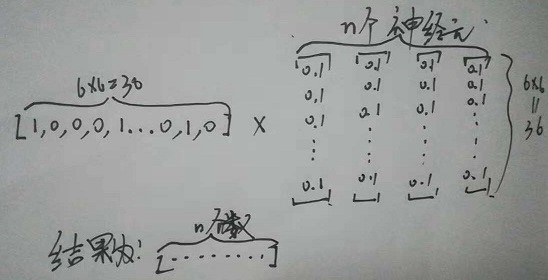 n个神经元
6x6=36
[1,0,0,0,1...0,1,0] X
0.1 0.1 0.1 0.1
0.1 0.1 0.1 0.1
0.1 0.1 0.1 0.1
0.1 0.1 0.1 0.1
6x6
11
36
结果为:
n个数
[.........]